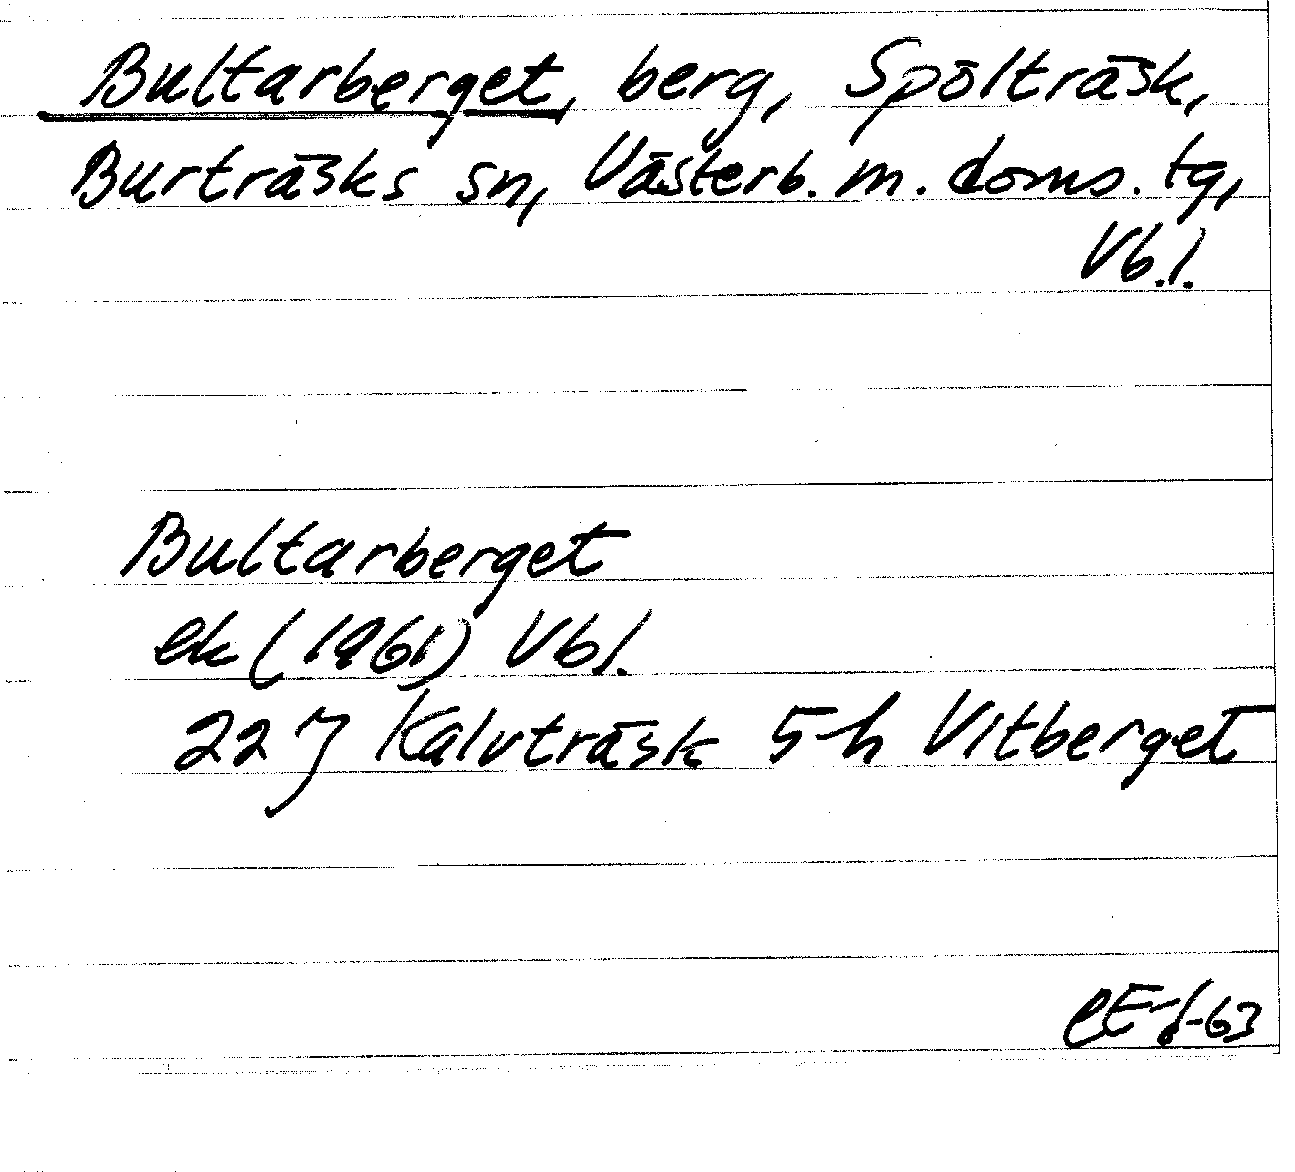 Bultarberget, berg, Spölträsk,
Burträsks sn, Västerb. m. doms. tg,
Vb.l.
Bultarberget
ek (1961) Vbl.
22 J Kalvträsk 5h Vitberget